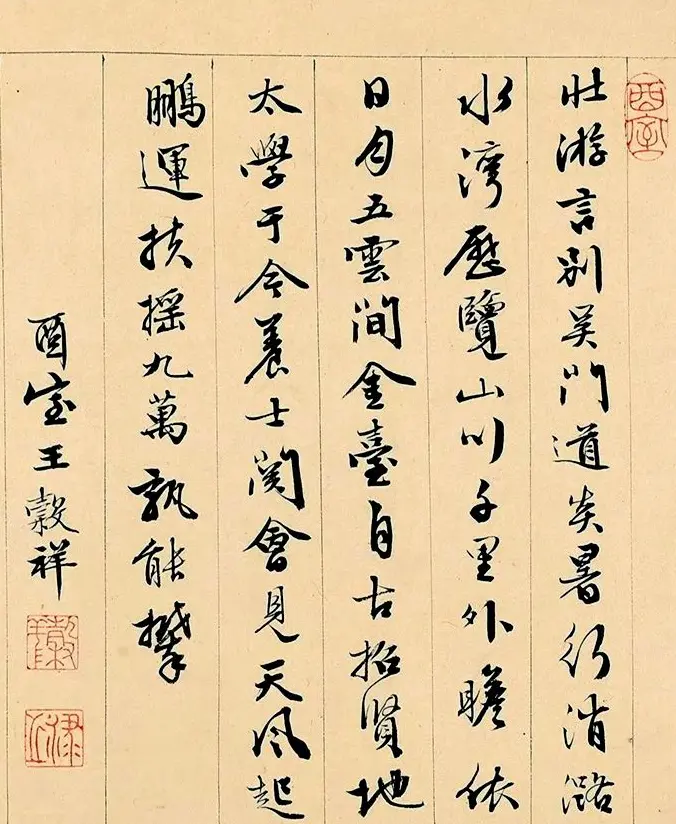 壯游言别吴門道炎暑行消潞
水灣歷覽山川千里外瞻依
日月五雲間金臺自古招賢地
太學于今養士関會見天風起
鵬運扶摇九萬孰能攀
酉室王榖祥
酉室